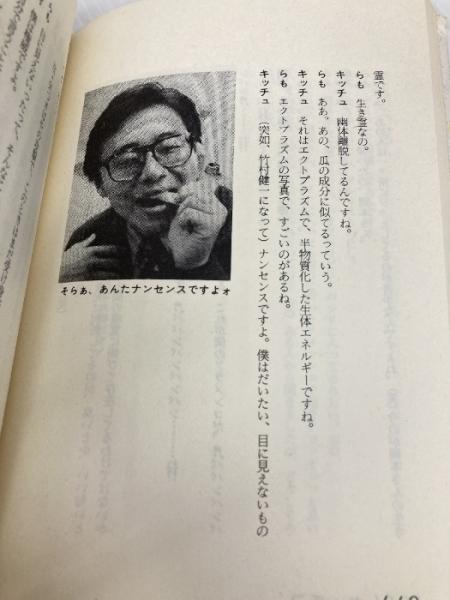 霊です。
らも　生き霊なの。
キッチュ　幽体離脱してるんですね。
らも　ああ。あの、瓜の成分に似てるっていう。
キッチュ　それはエクトプラズムで、半物質化した生体エネルギーですね。
らも　エクトプラズムの写真で、すごいのがあるね。
キッチュ　（突如、竹村健一になって）ナンセンスですよ。僕はだいたい、目に見えないもの
そらあ、あんたナンセンスですよォ